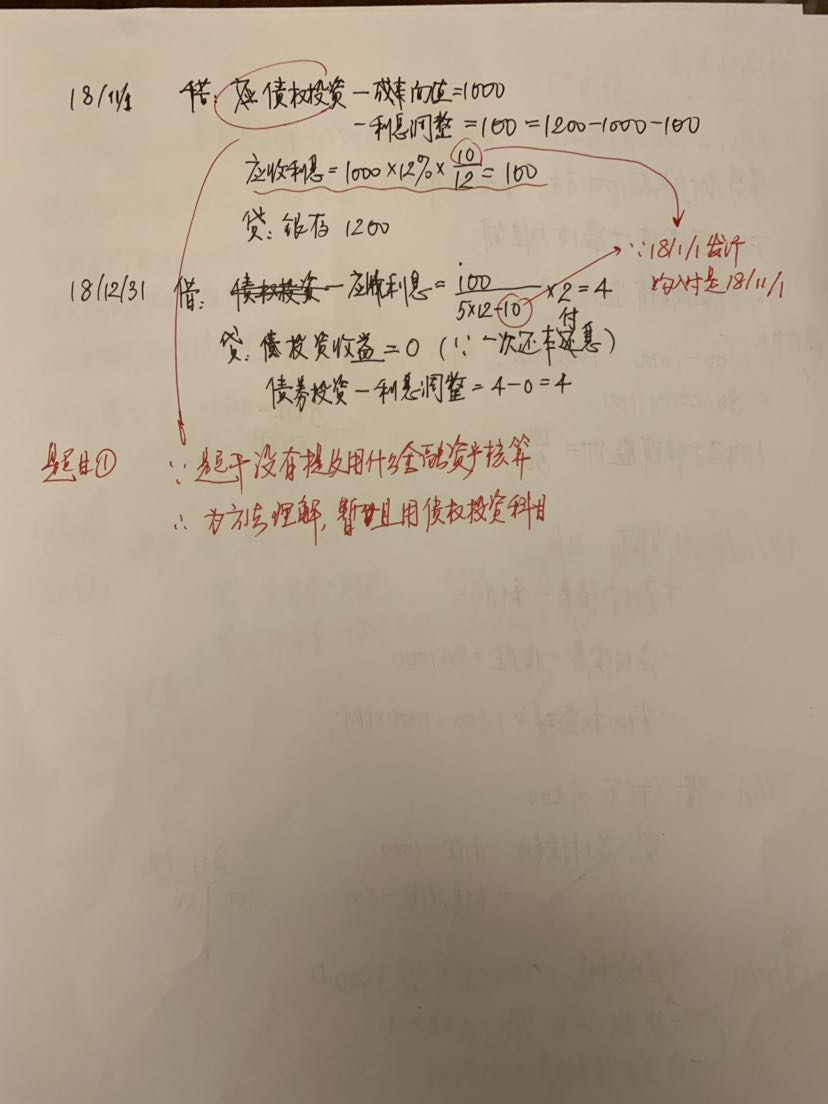 18/11/1 借: 债权投资-成本面值=1000
-利息调整=100=1200-1000-100
应收利息=1000×12%×10/12=100
贷: 银存 1200
∵18/1/1发行
购入时是18/11/1
18/12/31 借: 债权投资-应收利息=100/(5×12-10)×2=4
贷: 债投资收益=0 (∵一次还本付息)
债券投资-利息调整=4-0=4
题目① ∵题干没有提及用什么金融资产核算
∴为方法理解,暂且用债权投资科目